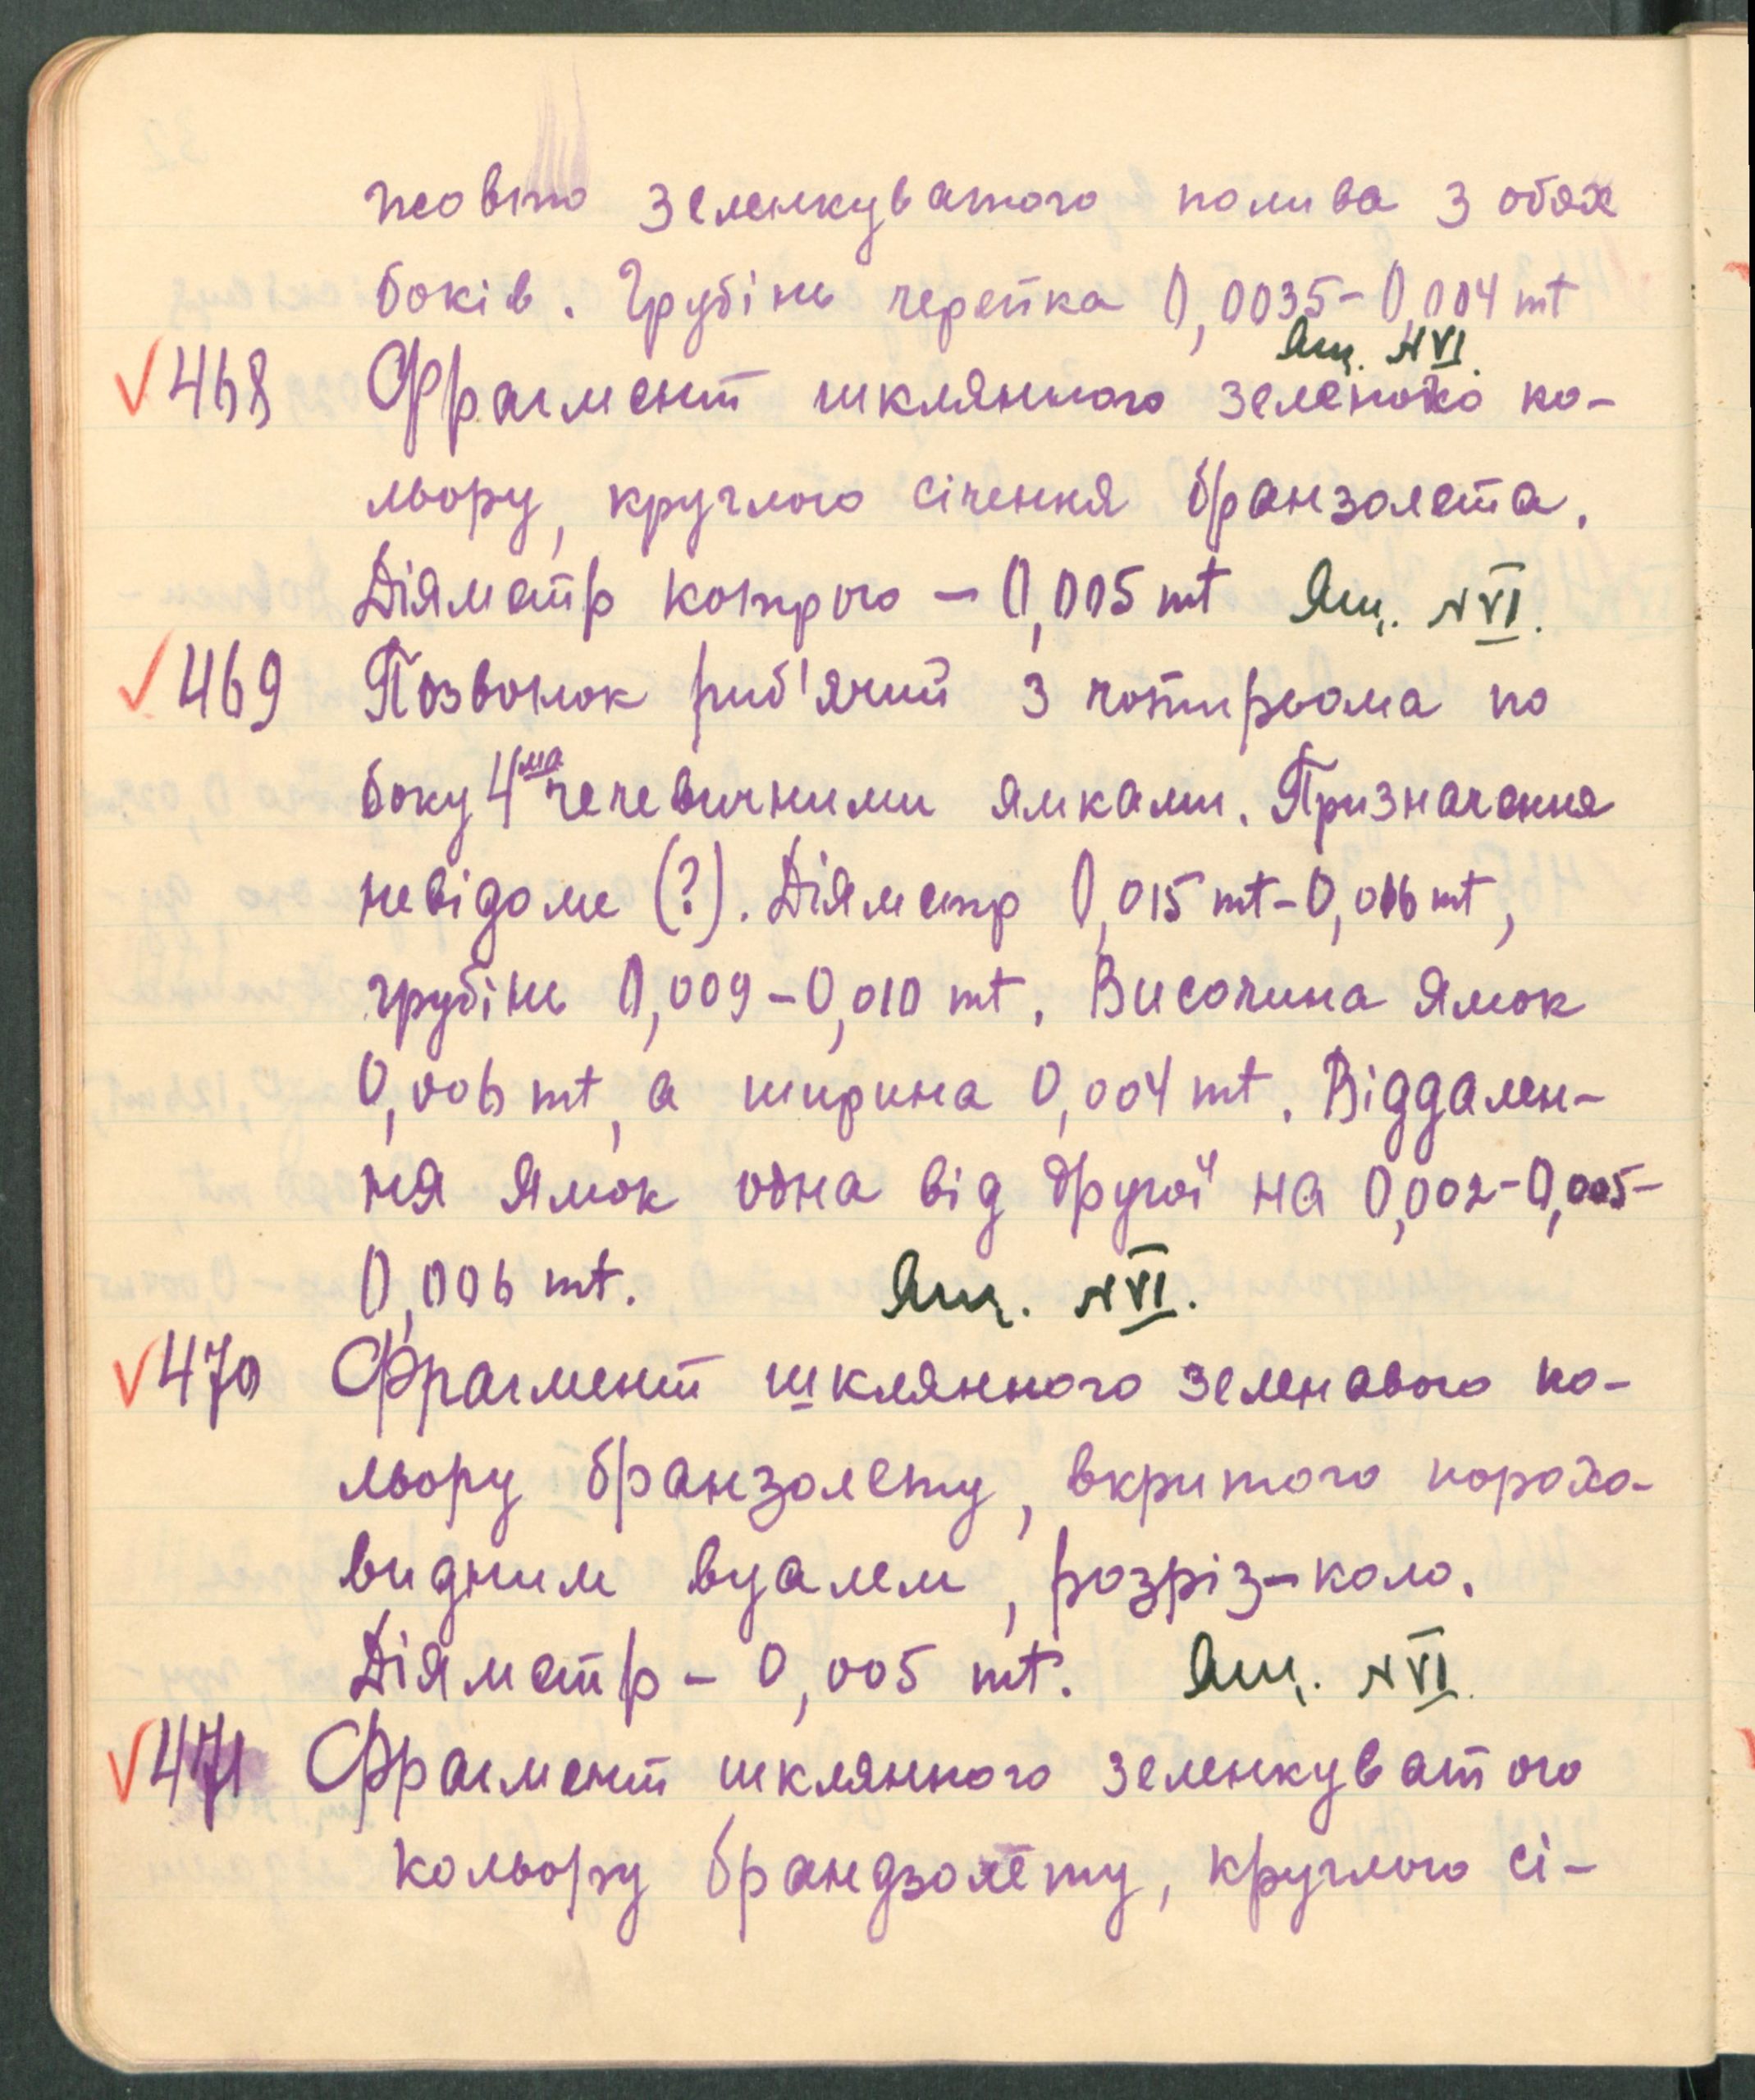 жовто зеленкуватого полива з обох
боків. Грубінь черепка 0,0035-0,004 mt
Ящ. № VI.
✓ 468 Фрагмент шклянного зеленого ко-
льору, круглого січення бранзолета.
Діяметр котрого – 0,005 mt Ящ. № VI.
✓ 469 Позвонок риб'ячий з чотирьома по
боку 4ма чечевичними ямками. Призначення
невідоме (?). Діяметр 0,015 mt-0,016 mt,
грубінь 0,009-0,010 mt. Височина ямок
0,006 mt, а ширина 0,004 mt. Віддален-
ня ямок одна від другої на 0,002-0,005-
0,006 mt. Ящ. № VI.
✓ 470 Фрагмент шклянного зеленавого ко-
льору бранзолету, вкритого порохо-
видним вуалем, розріз-коло.
Діяметр - 0,005 mt. Ящ. № VI.
✓ 471 Фрагмент шклянного зеленкуватого
кольору брандзолету, круглого сі-